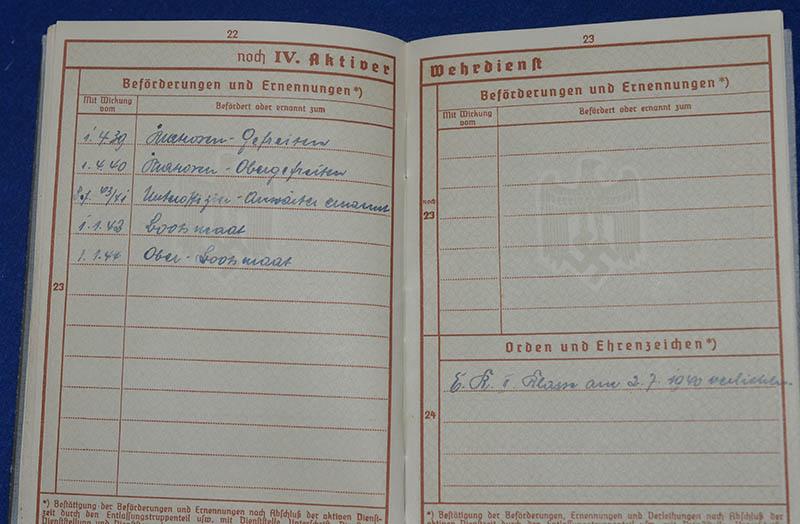 22
noch IV. Aktiver
Beförderungen und Ernennungen*)
Mit Wirkung vom
Befördert oder ernannt zum
1.4.39 Matrosen-Gefreiten
1.4.40 Matrosen-Obergefreiten
Unteroffizier-Anwärter ernannt
1.1.43 Bootsmaat
1.1.44 Ober-Bootsmaat
23
*) Bestätigung der Beförderungen und Ernennungen nach Abschluß der aktiven Dienst-
zeit durch den Entlassungstruppenteil usw. mit Dienststelle, Unterschrift,
23
Wehrdienst
Beförderungen und Ernennungen*)
Mit Wirkung vom
Befördert oder ernannt zum
noch
23
Orden und Ehrenzeichen*)
E. K. II Klasse am 2.7.1940 verliehen.
24
*) Bestätigung der Beförderungen, Ernennungen und Verleihungen nach Abschluß der